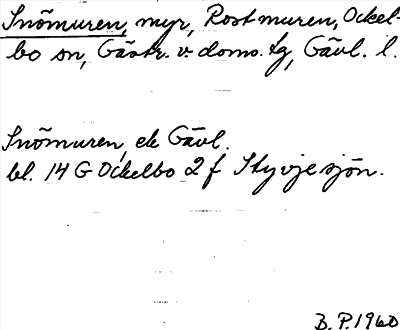 Snömuren, myr, Rostmuren, Ockel-
bo sn, Gästr. v. doms. tg, Gävl. l.
Snömuren, ek Gävl.
bl. 14 G Ockelbo 2 f Styvjesjön.
B. P. 1960